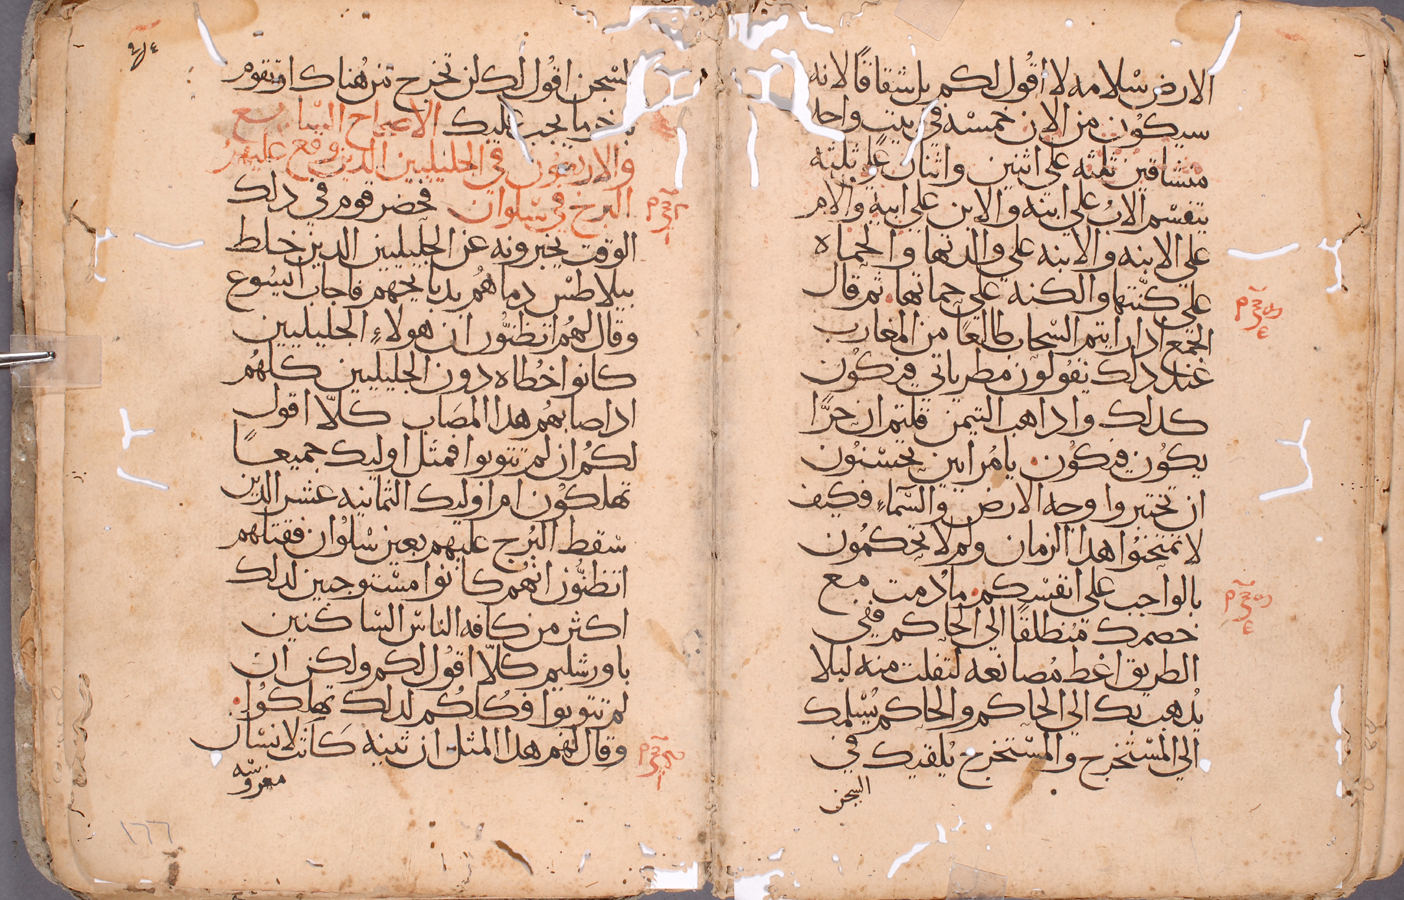 الارض سلامه لا اقول لكم بل شقاقا لانه
سيكون من الان خمسه في بيت واحد
متشاقين ثلثه علي اثنين واثنان علي ثلثه
ينقسم الاب علي ابنه والابن علي ابيه والام
علي الابنه والابنه علي والدتها والحماه
علي كنتها والكنه علي حماتها. ثم قال
للجمع ادا رايتم السحاب طالعا من المغارب
عند دلك تقولون مطر ياتي فيكون
كدلك وادا هب التيمن قلتم ان حرا
يكون فيكون. يا مرايين تحسنون
ان تختبروا وجه الارض والسماء فكيف
لا تمتحنوا هدا الزمان ولم لا تحكمون
بالواجب علي انفسكم. ما دمت مع
خصمك منطلقا الي الحاكم ففي
الطريق اعط مصانعه لتفلت منه ليلا
يدهب بك الي الحاكم والحاكم يسلمك
الي المستخرج والمستخرج يلقيك في
السجن
السجن اقول لك لن تخرج من هناك او تقوم
يجب عليك الاصحاح السابع
والاربعون في الجليليين الدين وقع عليهم
البرج في سلوان فحضر قوم في دلك
الوقت يخبرونه عن الجليليين الدين خلط
بيلاطس دماهم بدبايحهم فاجاب ايسوع
وقال لهم اتظنون ان هولاء الجليليين
كانوا خطاه دون الجليليين كلهم
اد اصابهم هدا المصاب كلا اقول
لكم ان لم تتوبوا فمثل اوليك جميعا
تهلكون ام اوليك الثمانيه عشر الدين
سقط البرج عليهم بعين سلوان فقتلهم
اتظنون انهم كانوا مستوجبين لدلك
اكثر من كافه الناس الساكنين
باورشليم كلا اقول لكم ولكن ان
لم تتوبوا فكلكم لدلك تهلكوا.
وقال لهم هدا المثل ان تينه كانت لانسان
مغروسه
١٦٦